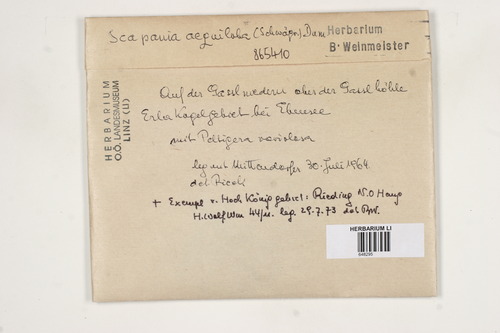 Scapania aequiloba (Schwägr.) Dum
Herbarium
B. Weinmeister
865410
HERBARIUM
O.Ö. LANDESMUSEUM
LINZ (LI)
Auf der Gasselniedern ober der Gasselhöhle
Erlakogelgebiet bei Ebensee
mit Peltigera
leg mit Mittendorfer 30. Juli 1964
det Ricek
+ Exempl v. Hochköniggebiet: Riedling N.O
H. Wolf Wien 44/11. leg. 29.7.73 det
HERBARIUM LI
648295